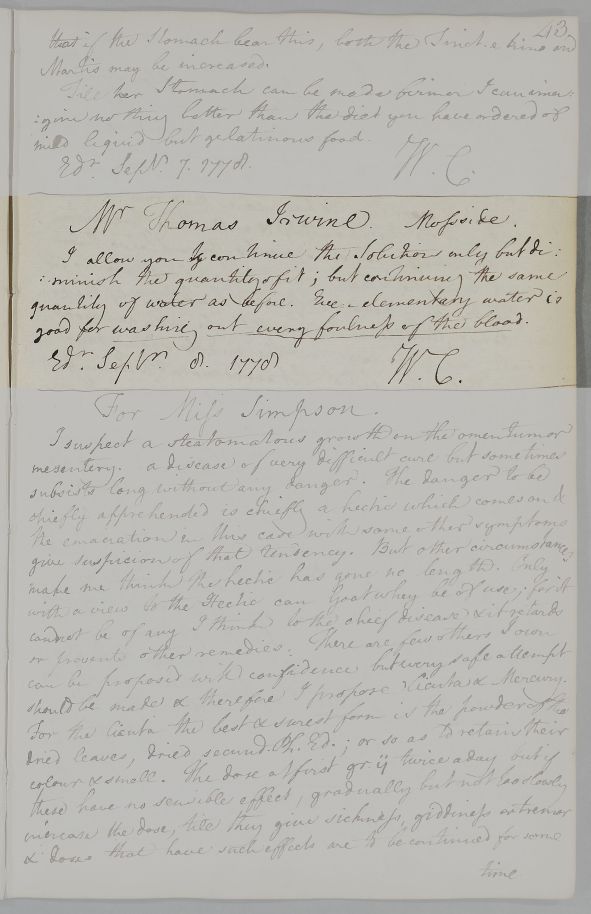 43
that if the Stomach bear this, both the Tinct. e kino and
Martis may be increased.
Till her Stomach can be made firmer I can ima:
:gine nothing better than the diet you have ordered of
mild liquid but gelatinous food.
Edr. Septr. 7. 1778. W. C.
Mr Thomas Irwine. Mosside.
I allow you to continue the Solution only but di:
:minish the quantity of it; but continuing the same
quantity of water as before. The elementary water is
good for washing out every foulness of the blood.
Edr. Septr. 8. 1778 W. C.
For Miss Simpson.
I suspect a steatomatous growth on the omentum or
mesentery. a disease of very difficult cure but sometimes
subsists long without any danger. The danger to be
chiefly apprehended is chiefly a hectic which comes on &
the emaciation in this case with some other symptoms
give suspicion of that tendency. But other circumstances
make me think the hectic has gone no length. Only
with a view to the Hectic can Goat whey be of use; for it
cannot be of any I think to the chief disease & it retards
or prevents other remedies. There are few others I own
can be proposed with confidence but very safe attempt
should be made & therefore I propose Cicuta & Mercury.
For the Cicuta the best & surest form is the powder of the
dried leaves, dried secund. Ph. Ed.; or so as to retain their
colour & smell. The dose at first gr ij twice a day but if
these have no sensible effect, gradually but not too slowly
increase the dose, till they give sickness, giddiness or tremor
& doses that have such effects are to be continued for some
time